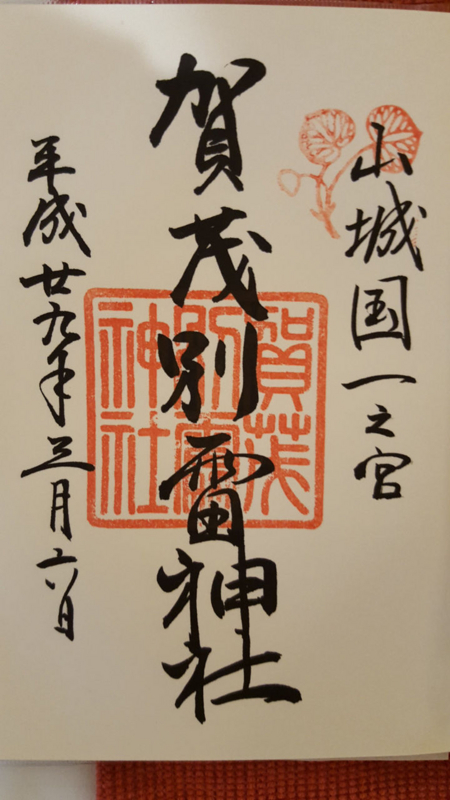 山城国一之宮
賀茂別雷神社
賀茂別雷神社
平成廿九年三月六日